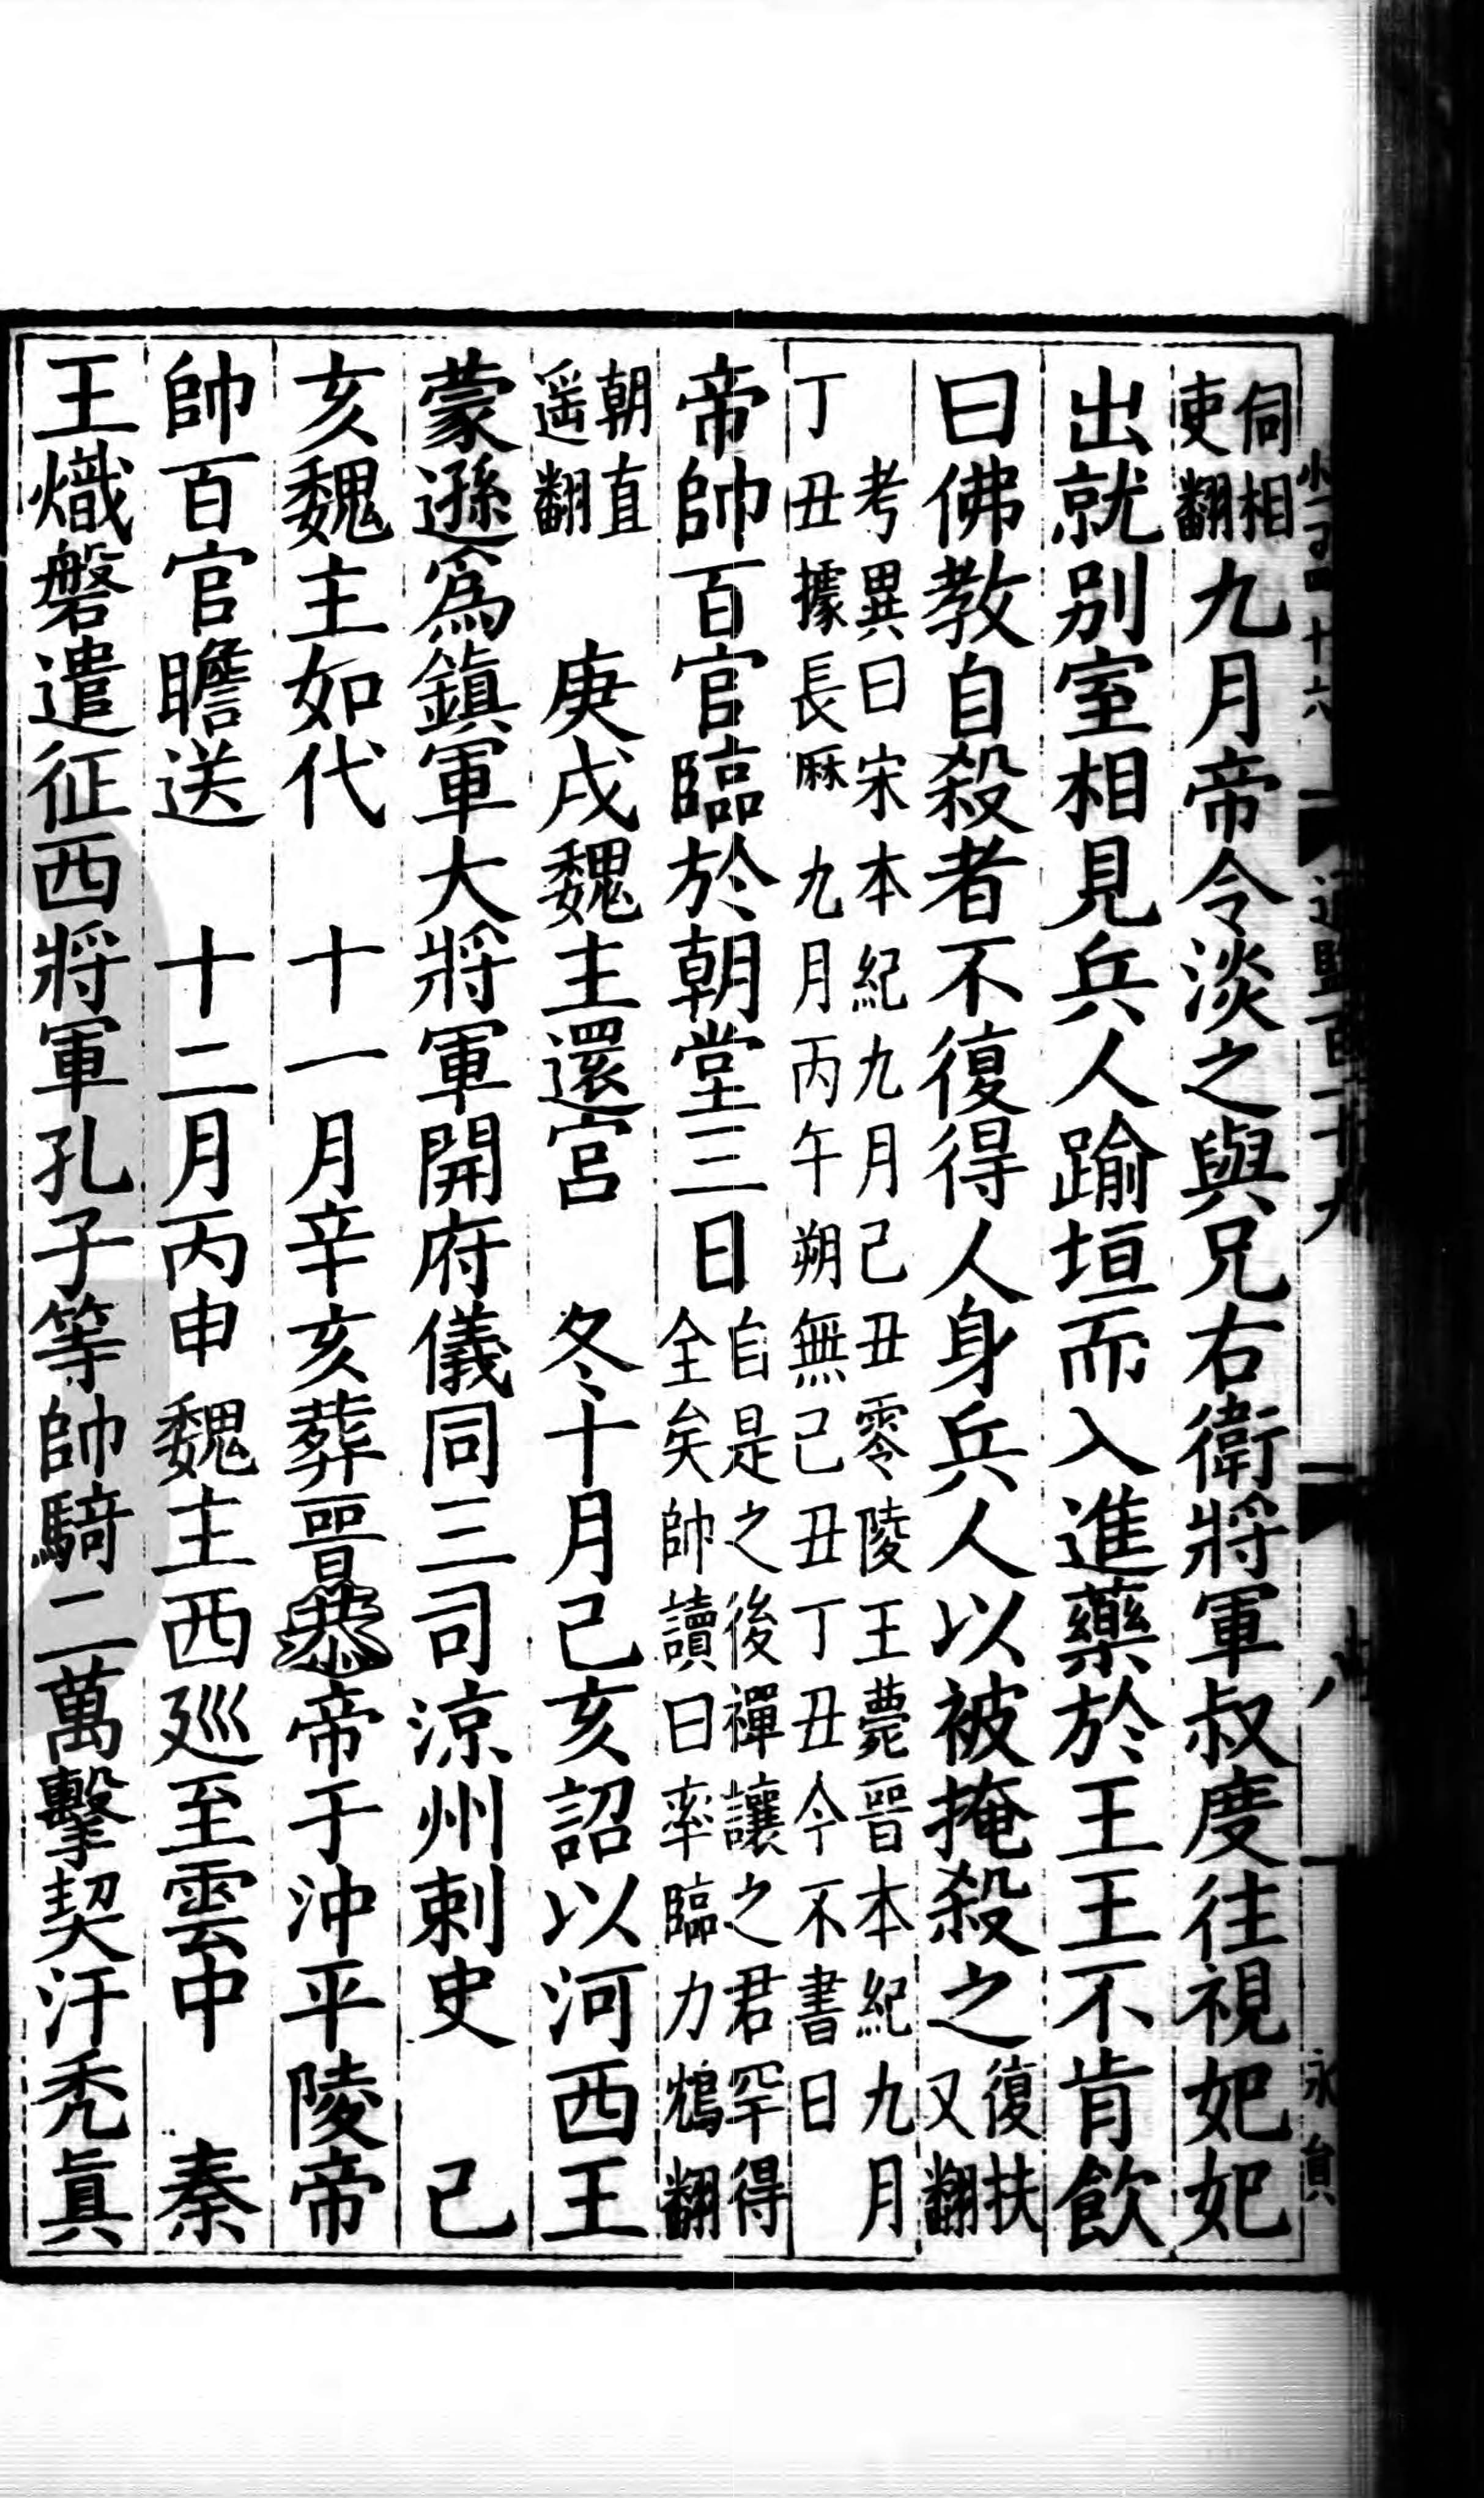 伺相吏翻九月帝令淡之與兄右衛將軍叔度往視妃妃
出就別室相見兵人踰垣而入進藥於王王不肯飲
曰佛教自殺者不復得人身兵人以被掩殺之復扶又翻
考異曰宋本紀九月己丑零陵王薨晉本紀九月
丁丑據長厤九月丙午朔無己丑丁丑今不書日
帝帥百官臨於朝堂三日自是之後禪讓之君罕得全矣帥讀曰率臨力鴆翻
朝直遥翻　庚戌魏主還宫　冬十月己亥詔以河西王
蒙遜爲鎮軍大將軍開府儀同三司涼州刺史　己
亥魏主如代　十一月辛亥葬晉恭帝于沖平陵帝
帥百官瞻送　十二月丙申魏主西廵至雲中　秦
王熾磐遣征西將軍孔子等帥騎二萬擊契汗秃眞